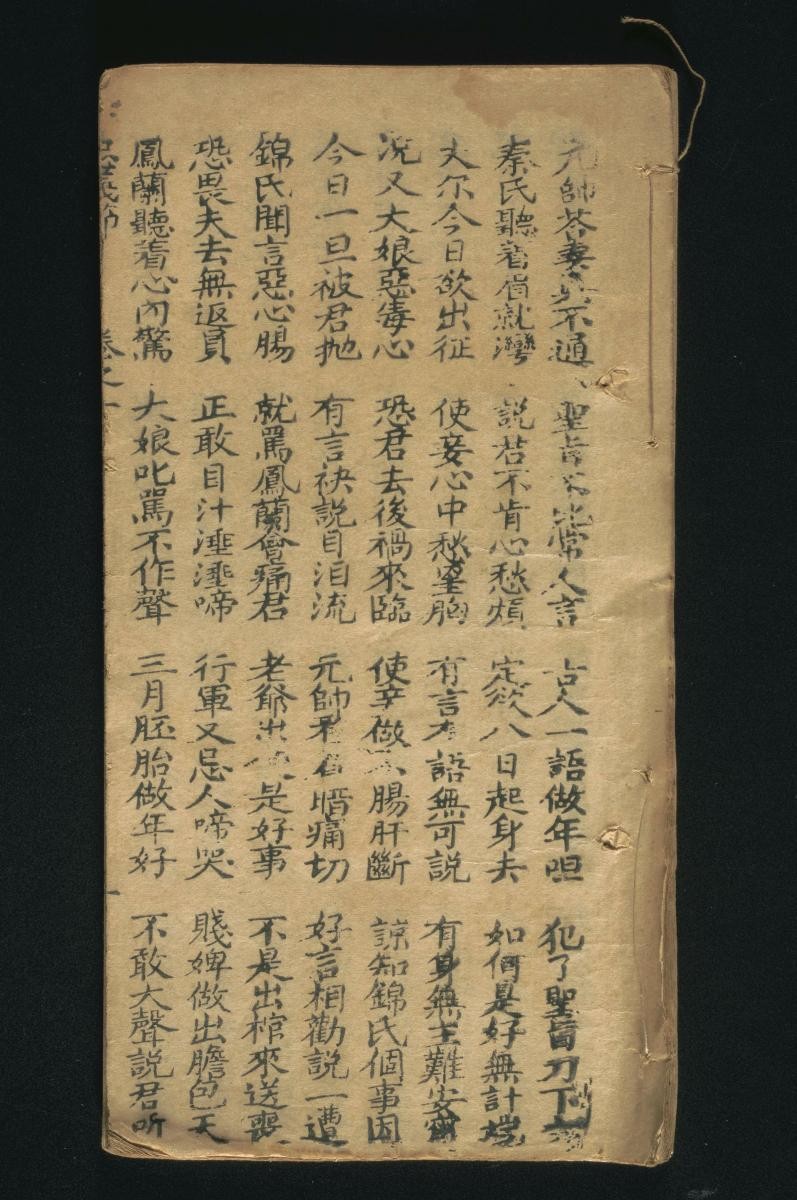 元帥答妻 不通 聖旨 常人言 古人一語做年呾 犯了聖旨刀下
秦氏聽着眉就灣 說若不肯心愁煩 定欲八日起身去 如何是好無計
丈尔今日欲出征 使妾心中愁 胸 有言有語無可說 有身無主難安
况又大娘惡毒心 恐君去後禍來臨 使辛做 腸肝斷 諒知錦氏個事因
今日一旦被君抛 有言袂說目泪流 元帥看 惜痛切 好言相勸說一遭
錦氏聞言惡心腸 就罵鳳蘭會痛君 老爺出 是好事 不是出棺來送喪
恐畏夫去無返員 正敢目汁淮淮啼 行軍又忌人啼哭 賤婢做出膽包天
鳳蘭聽着心內驚 大娘叱罵不作聲 三月胚胎做年好 不敢大聲說君听
節 卷之一 一